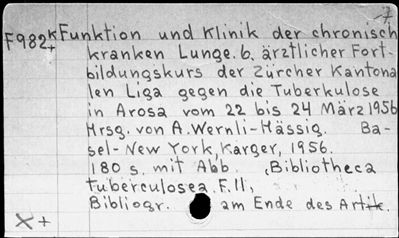 F982K+ Funktion und Klinik der chronisch
kranken Lunge. 6. ärztlicher Fort-
bildungskurs der Zürcher Kantona
len Liga gegen die Tuberkulose
in Arosa vom 22 bis 24 März 1956
Hrsg. von A. Wernli-Hässig. Ba-
sel-New York, Karger, 1956.
180 s. mit Abb. (Bibliotheca
tuberculosea. F. 11,
Bibliogr. am Ende des Artik.
X+